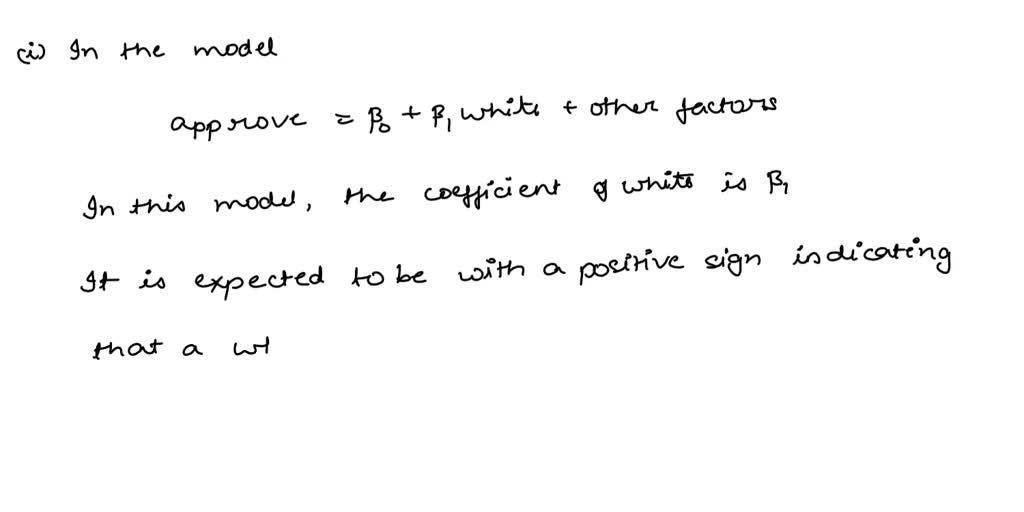 (i) In the model
approve = β₀ + β₁ white + other factors
In this model, the coefficient of white is β₁
It is expected to be with a positive sign indicating
that a wh